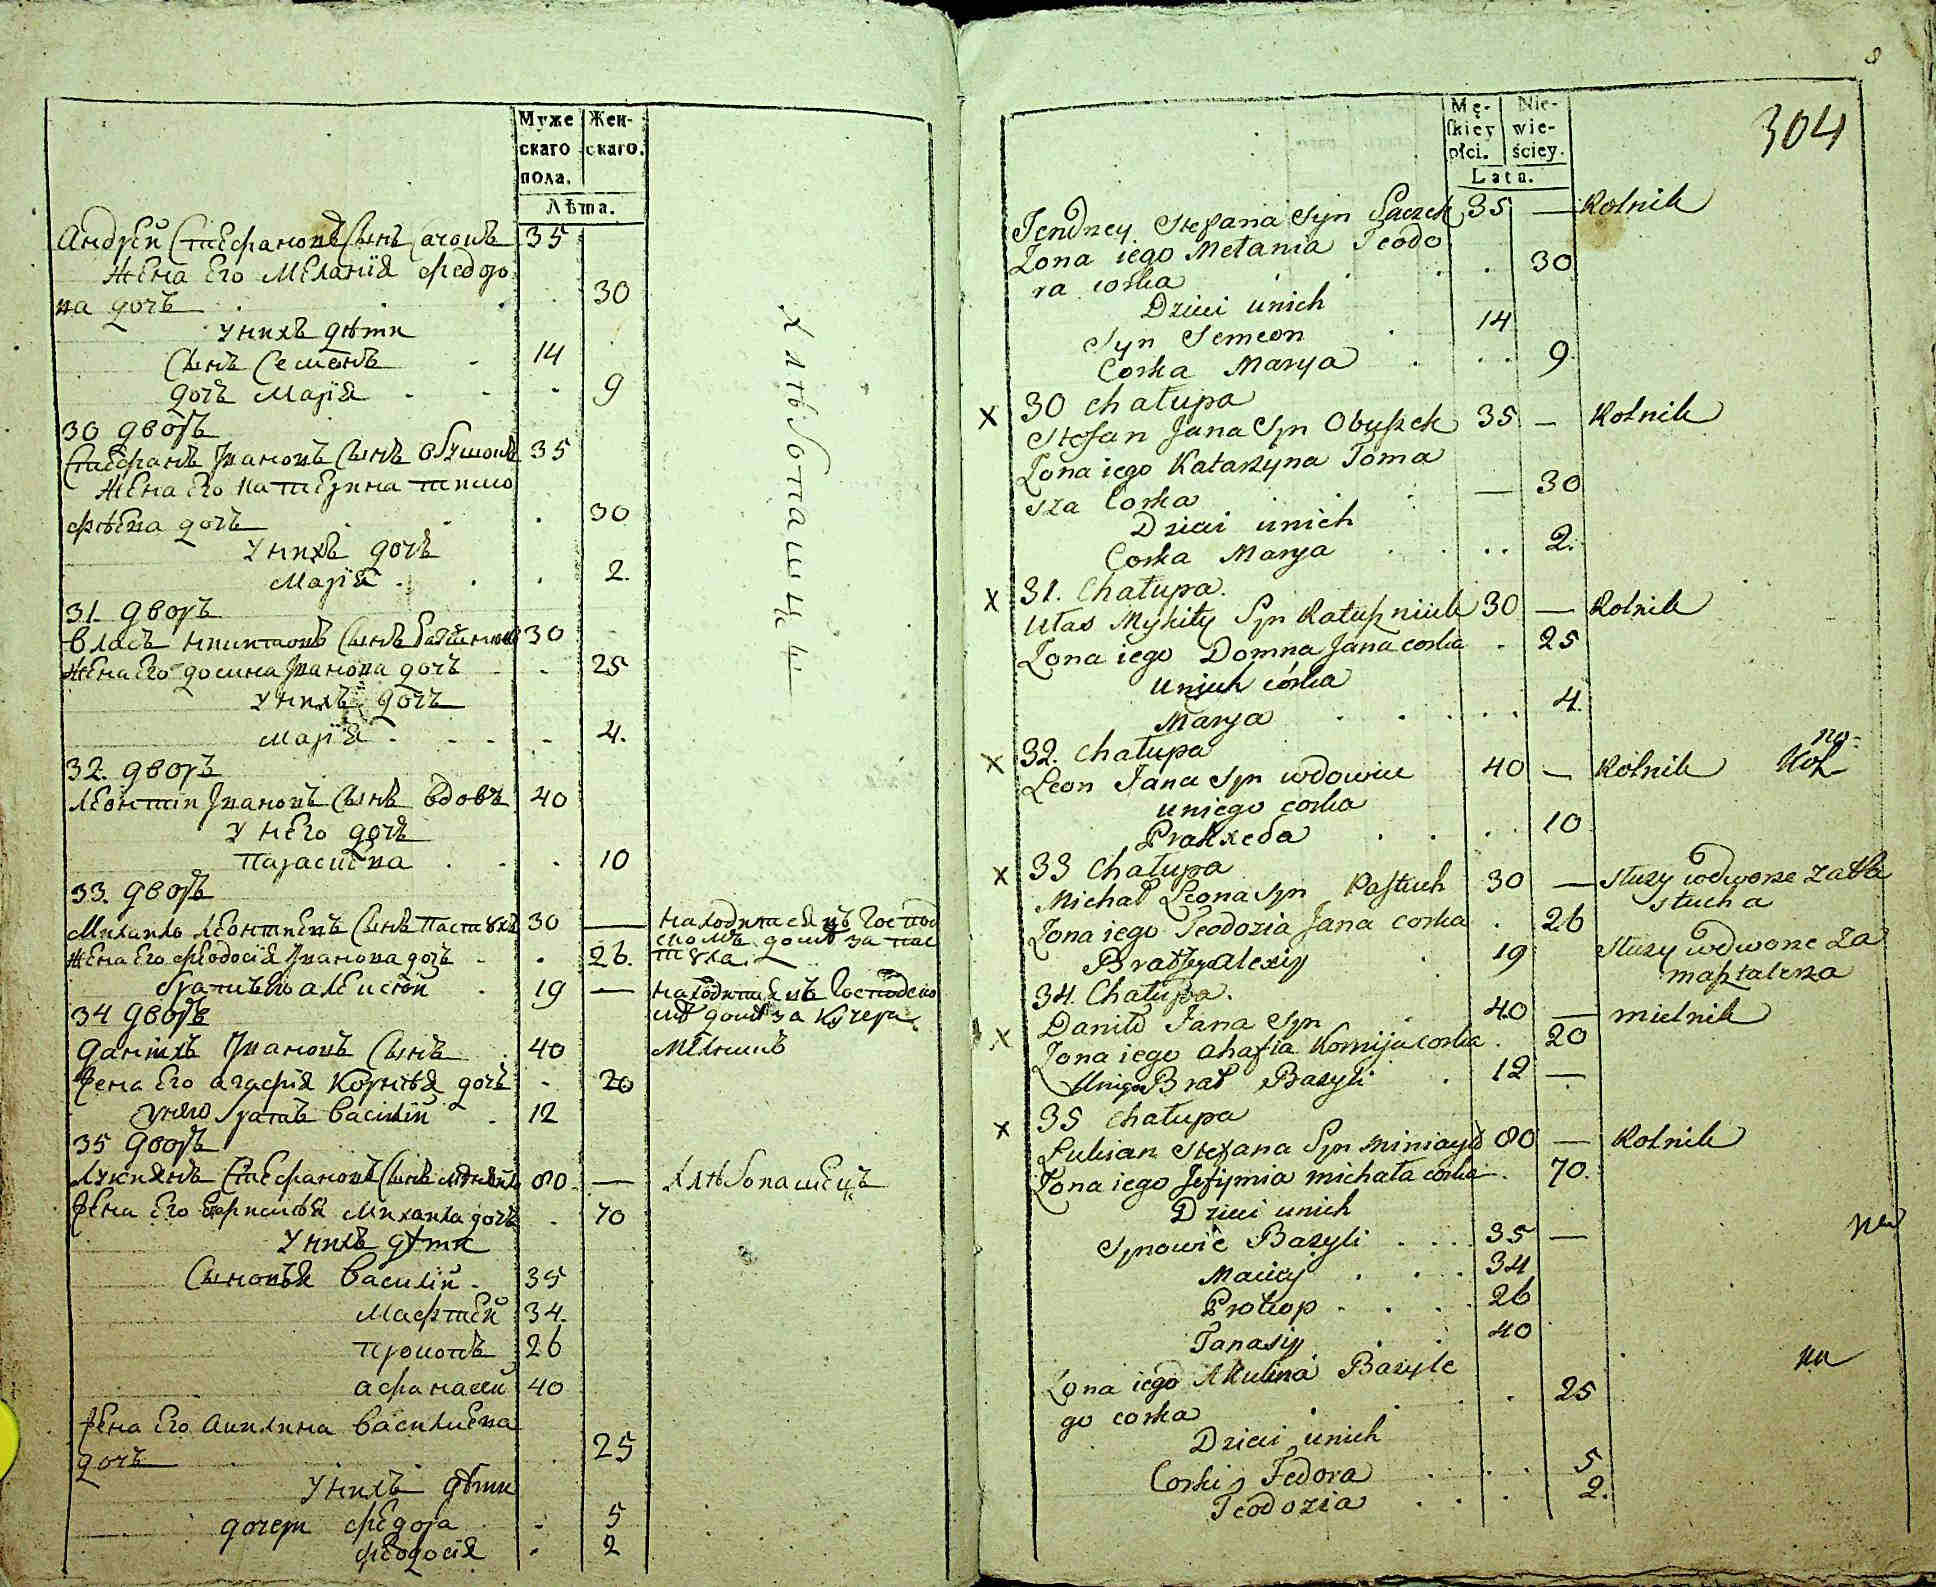 Муже
скаго
пола.
Жен-
скаго.
Лѣта.
Андрей Стефановъ Сынъ 35
Жена Его Меланія Федоро
ва дочъ 30
У нихъ дѣти
Сынъ Семенъ 14
дочъ Марія 9
30 дворъ
Стефанъ Ивановъ Сынъ 35
Жена Его Катерина Тимо
фѣева дочъ 30
У нихъ дочъ
Марія 2.
31. дворъ
Власъ Никитовъ Сынъ 30
Жена Его домна Иванова дочъ 25
У нихъ дочъ
Марія 4.
32. дворъ
Леонтій Ивановъ Сынъ вдовъ 40
У него дочъ
Параскева 10
33. дворъ
Михайло Леонтиевъ Сынъ Пастухъ 30 — находится въ Господ
скомъ домѣ за пас
туха.
Жена Его Феодосія Иванова дочъ 26.
братъ Его Алексій 19 — находится въ Господско
мъ домѣ за кучера
34 дворъ
Данилъ Ивановъ Сынъ 40 Мелникъ
Жена Его Агафія Корнѣя дочъ 20
У него братъ Василій 12
35 дворъ
Лукиянъ Стефановъ Сынъ 80 — Хлѣбопашецъ
Жена Его Евфимія Михаила дочъ 70
У нихъ дѣти
Сыновья Василій 35
Мафтей 34.
Прокопъ 26
Афанасій 40
Жена Его Акилина Василиева
дочъ 25
У нихъ дѣти
дочери Федора 5
Феодосія 2
Хлѣбопашцы
8
304
Mę-
skiey
płci.
Nie-
wie-
ściey.
Lata.
Jendrzey Stefana Syn Saczek 35 — Rolnik
Zona iego Melania Teodo
ra corka 30
Dzieci unich
Syn Semeon 14
Corka Marya 9
x 30 chałupa
Stefan Jana Syn Obuszek 35 — Rolnik
Zona iego Katarzyna Toma
sza Corka — 30
Dzieci unich
Corka Marya 2.
x 31. Chałupa.
Ułas Mykity Syn 30 — Rolnik
Zona iego Domna Jana corka 25
Unich córka
Marya 4.
x 32. Chałupa
Leon Jana Syn wdowiec 40 — Rolnik
uniego corka
Prakxeda 10
x 33 Chałupa
Michał Leona Syn Pastuch 30 — Służy wdworze za Pa
stucha
Zona iego Teodozia Jana corka 26
Brat Jego Alexiy 19 Służy wdworze za
masztalerza
34. Chałupa.
x Daniło Jana Syn 40 — mielnik
Zona iego Ahafia Kornija corka 20
Uniego Brat Bazyli 12 —
x 35 chałupa
Lukian Stefana Syn 80 — Rolnik
Zona iego Jefymia michała corka 70.
Dzieci unich
Synowie Bazyli 35 —
Maciey 34
Prokop 26
Tanasiy 40
Zona iego Akulina Bazyle
go corka 25
Dzieci unich
Corki Fedora 5
Teodozia 2.